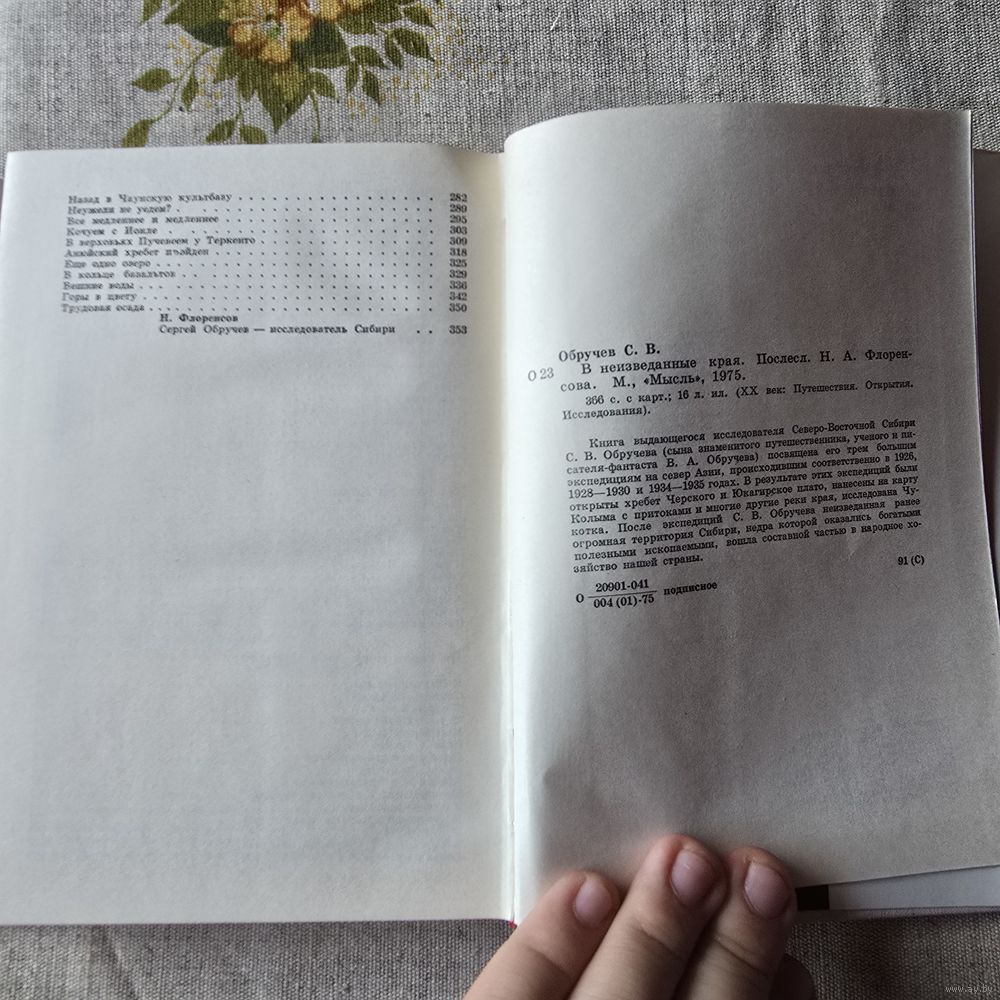 Назад в Чаунскую культбазу . . . . . . . . . . . . . . 282
Неужели не уедем? . . . . . . . . . . . . . . . . . . 289
Все медленнее и медленнее . . . . . . . . . . . . . . 295
Кочуем с Ионле . . . . . . . . . . . . . . . . . . . 303
В верховьях Пучевеем у Теркенто . . . . . . . . . . . 309
Анюйский хребет пройден . . . . . . . . . . . . . . . 318
Еще одно озеро . . . . . . . . . . . . . . . . . . . 325
В кольце базальтов . . . . . . . . . . . . . . . . . 329
Вешние воды . . . . . . . . . . . . . . . . . . . . . 336
Горы в цвету . . . . . . . . . . . . . . . . . . . . 342
Трудовая осада . . . . . . . . . . . . . . . . . . . 350
Н. Флоренсов
Сергей Обручев — исследователь Сибири . . 353
Обручев С. В.
О 23 В неизведанные края. Послесл. Н. А. Флорен-
сова. М., «Мысль», 1975.
366 с. с карт.; 16 л. ил. (XX век: Путешествия. Открытия.
Исследования).
Книга выдающегося исследователя Северо-Восточной Сибири
С. В. Обручева (сына знаменитого путешественника, ученого и пи-
сателя-фантаста В. А. Обручева) посвящена его трем большим
экспедициям на север Азии, происходившим соответственно в 1926,
1928—1930 и 1934—1935 годах. В результате этих экспедиций были
открыты хребет Черского и Юкагирское плато, нанесены на карту
Колыма с притоками и многие другие реки края, исследована Чу-
котка. После экспедиций С. В. Обручева неизведанная ранее
огромная территория Сибири, недра которой оказались богатыми
полезными ископаемыми, вошла составной частью в народное хо-
зяйство нашей страны.
О 20901-041 подписное 91 (С)
004 (01)-75
www.ay.by